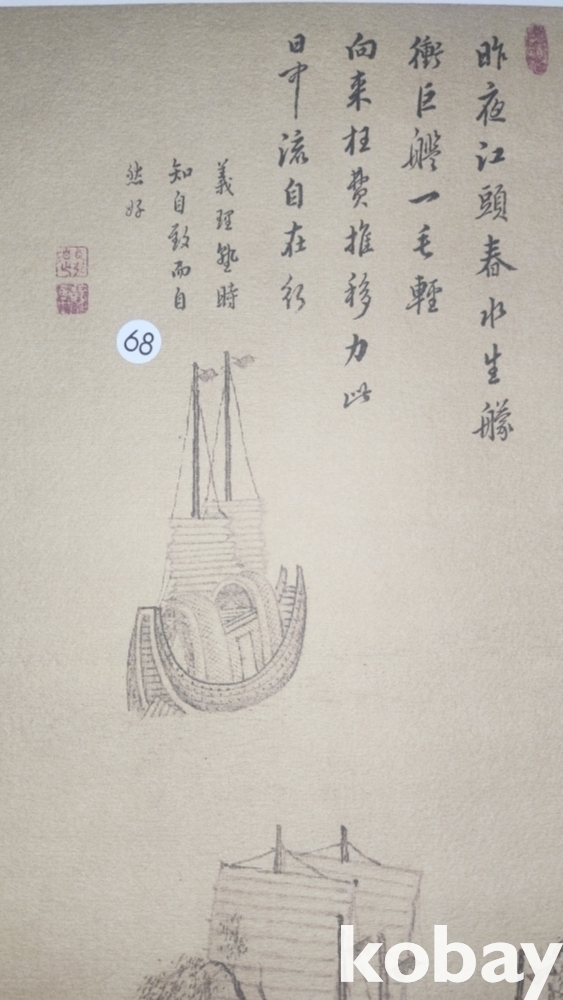 昨夜江頭春水生艨
衝巨艦一毛輕
向来枉費推移力此
日中流自在行
義理熟時
知自致而自
然好
68
kobay